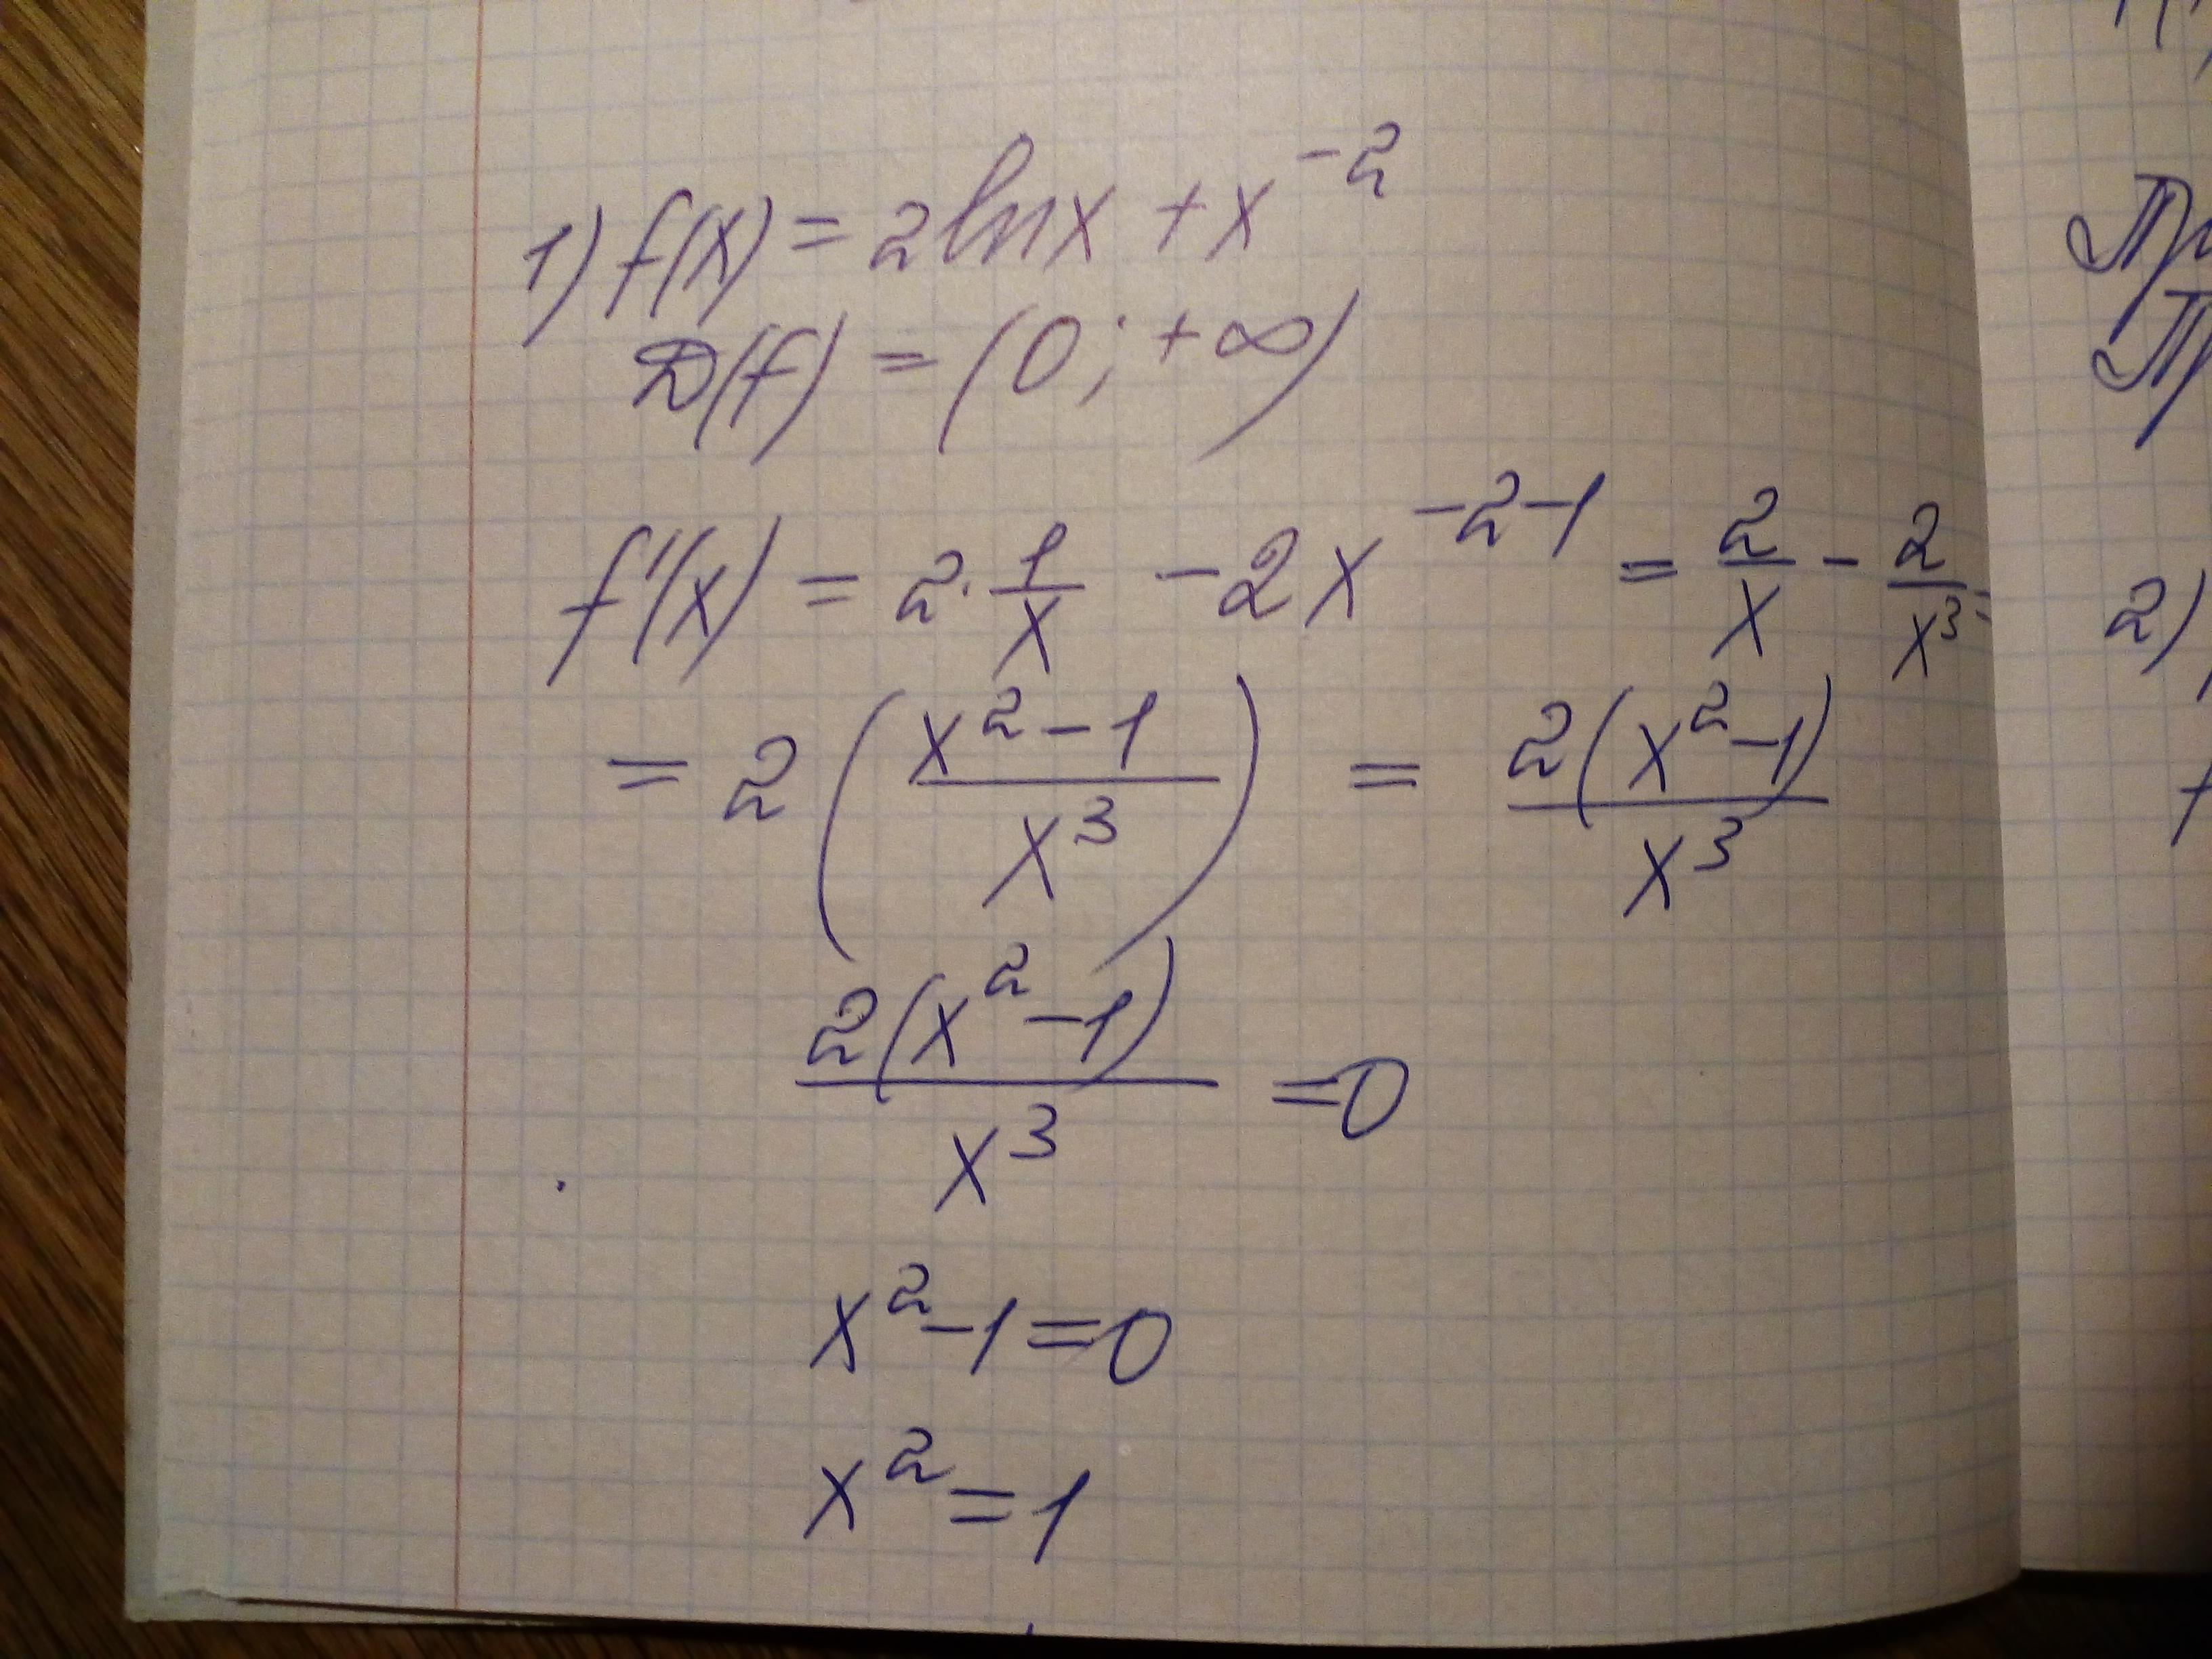 1) f(x) = 2lnx + x^{-2}
D(f) = (0; +∞)
f'(x) = 2·\frac{1}{x} - 2x^{-2-1} = \frac{2}{x} - \frac{2}{x^3} =
= 2(\frac{x^2-1}{x^3}) = \frac{2(x^2-1)}{x^3}
\frac{2(x^2-1)}{x^3} = 0
x^2-1=0
x^2=1
2)